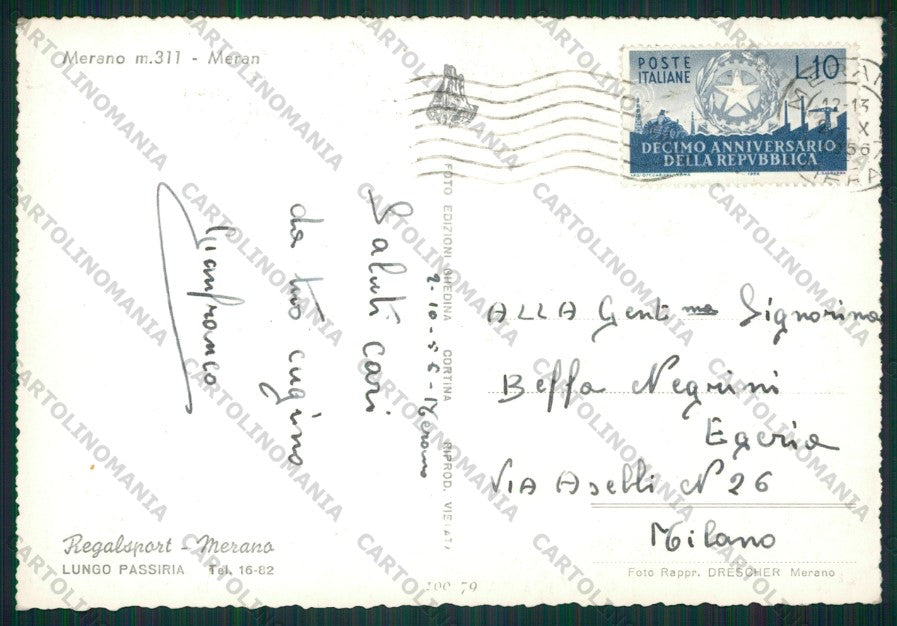 Merano m.311 - Meran
POSTE
ITALIANE
L10
DECIMO ANNIVERSARIO
DELLA REPVBBLICA
12-13
X
56
Saluti cari
da tuo cugino
Gianfranco
2-10-55-Merano
FOTO EDIZIONI GHEDINA CORTINA RIPROD. VIETATA
ALLA Gent ma Signorina
Beffa Negrini
Egeria
VIA Aselli N 26
Milano
Regalsport - Merano
LUNGO PASSIRIA Tel. 16-82
Foto Rappr. DRESCHER Merano
CARTOLINOMANIA